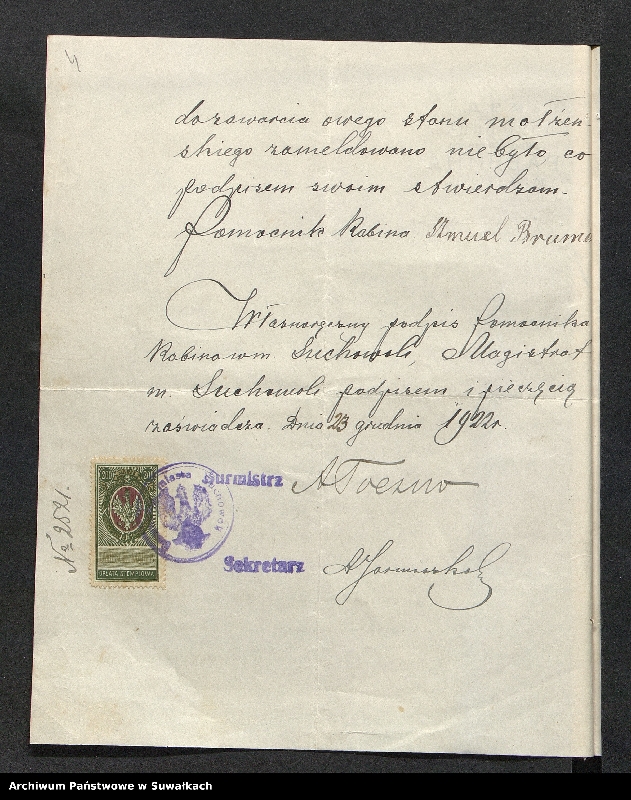 4
do zawarcia owego stanu małżeń-
skiego zameldowano nie było, co
podpisem swoim stwierdzam.
Pomocnik Rabina Szmuel
Własnoręczny podpis Pomocnika
Rabina w m. Suchowoli, Magistrat
m. Suchowoli podpisem i pieczęcią
zaświadcza. Dnia 23 grudnia 1922 r.
Burmistrz
№ 2521.
Sekretarz
OPŁATA STEMPLOWA
Archiwum Państwowe w Suwałkach